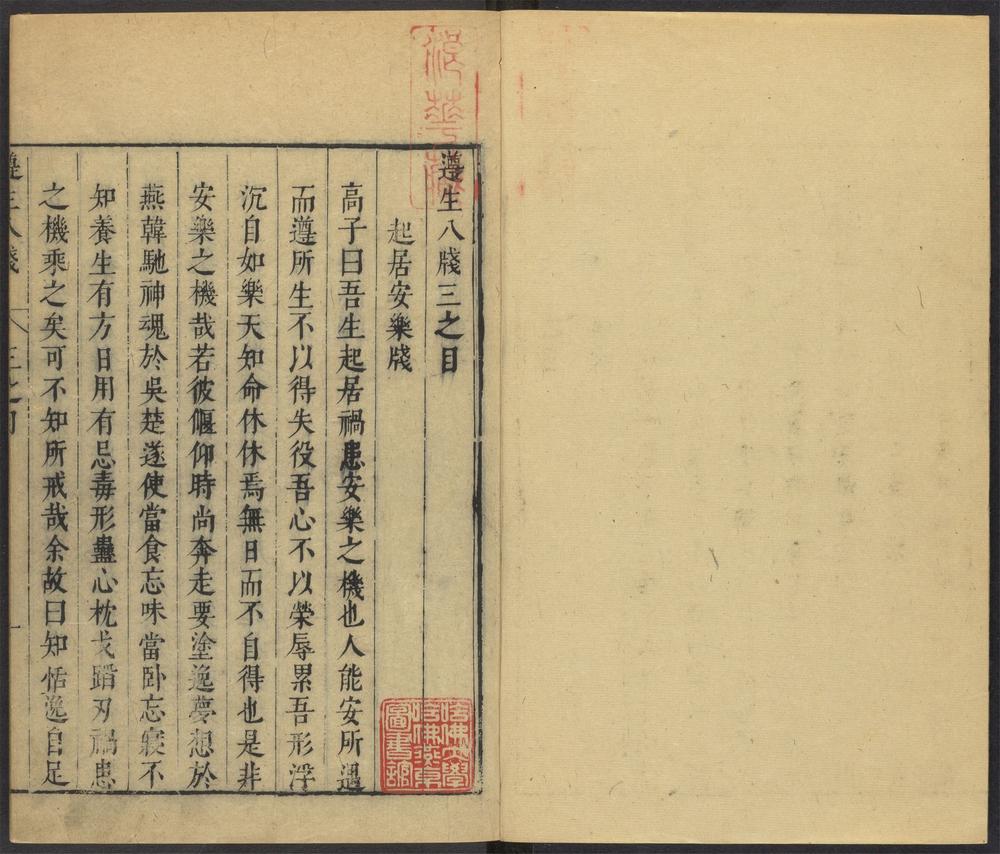 遵生八牋三之目
起居安樂牋
高子曰吾生起居禍患安樂之機也人能安所遇
而遵所生不以得失役吾心不以榮辱累吾形浮
沉自如樂天知命休休焉無日而不自得也是非
安樂之機哉若彼偃仰時尚奔走要塗逸夢想於
燕韓馳神魂於吳楚遂使當食忘味當卧忘寢不
知養生有方日用有忌毒形蠱心枕戈蹈刃禍患
之機乘之矣可不知所戒哉余故曰知恬逸自足
哈佛大學
哈佛燕京
圖書館